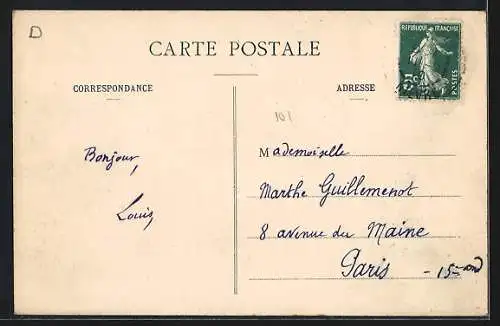 D
CARTE POSTALE
RÉPUBLIQUE FRANÇAISE
5c
POSTES
CORRESPONDANCE
ADRESSE
107
Bonjour,
Louis
Mademoiselle
Marthe Guillemenot
8 avenue du Maine
Paris - 15